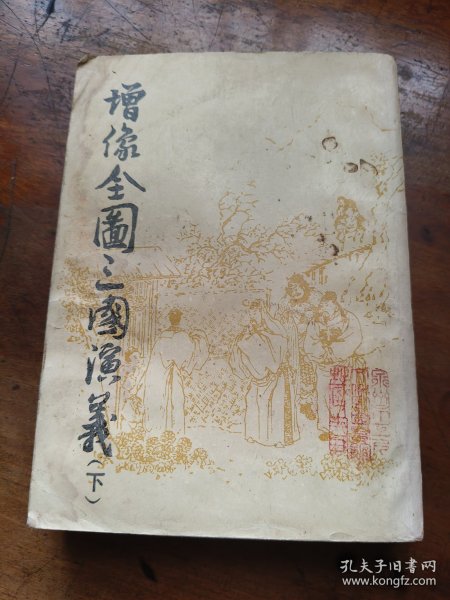 增像全圖三國演義（下）
孔夫子旧书网
www.kongfz.com